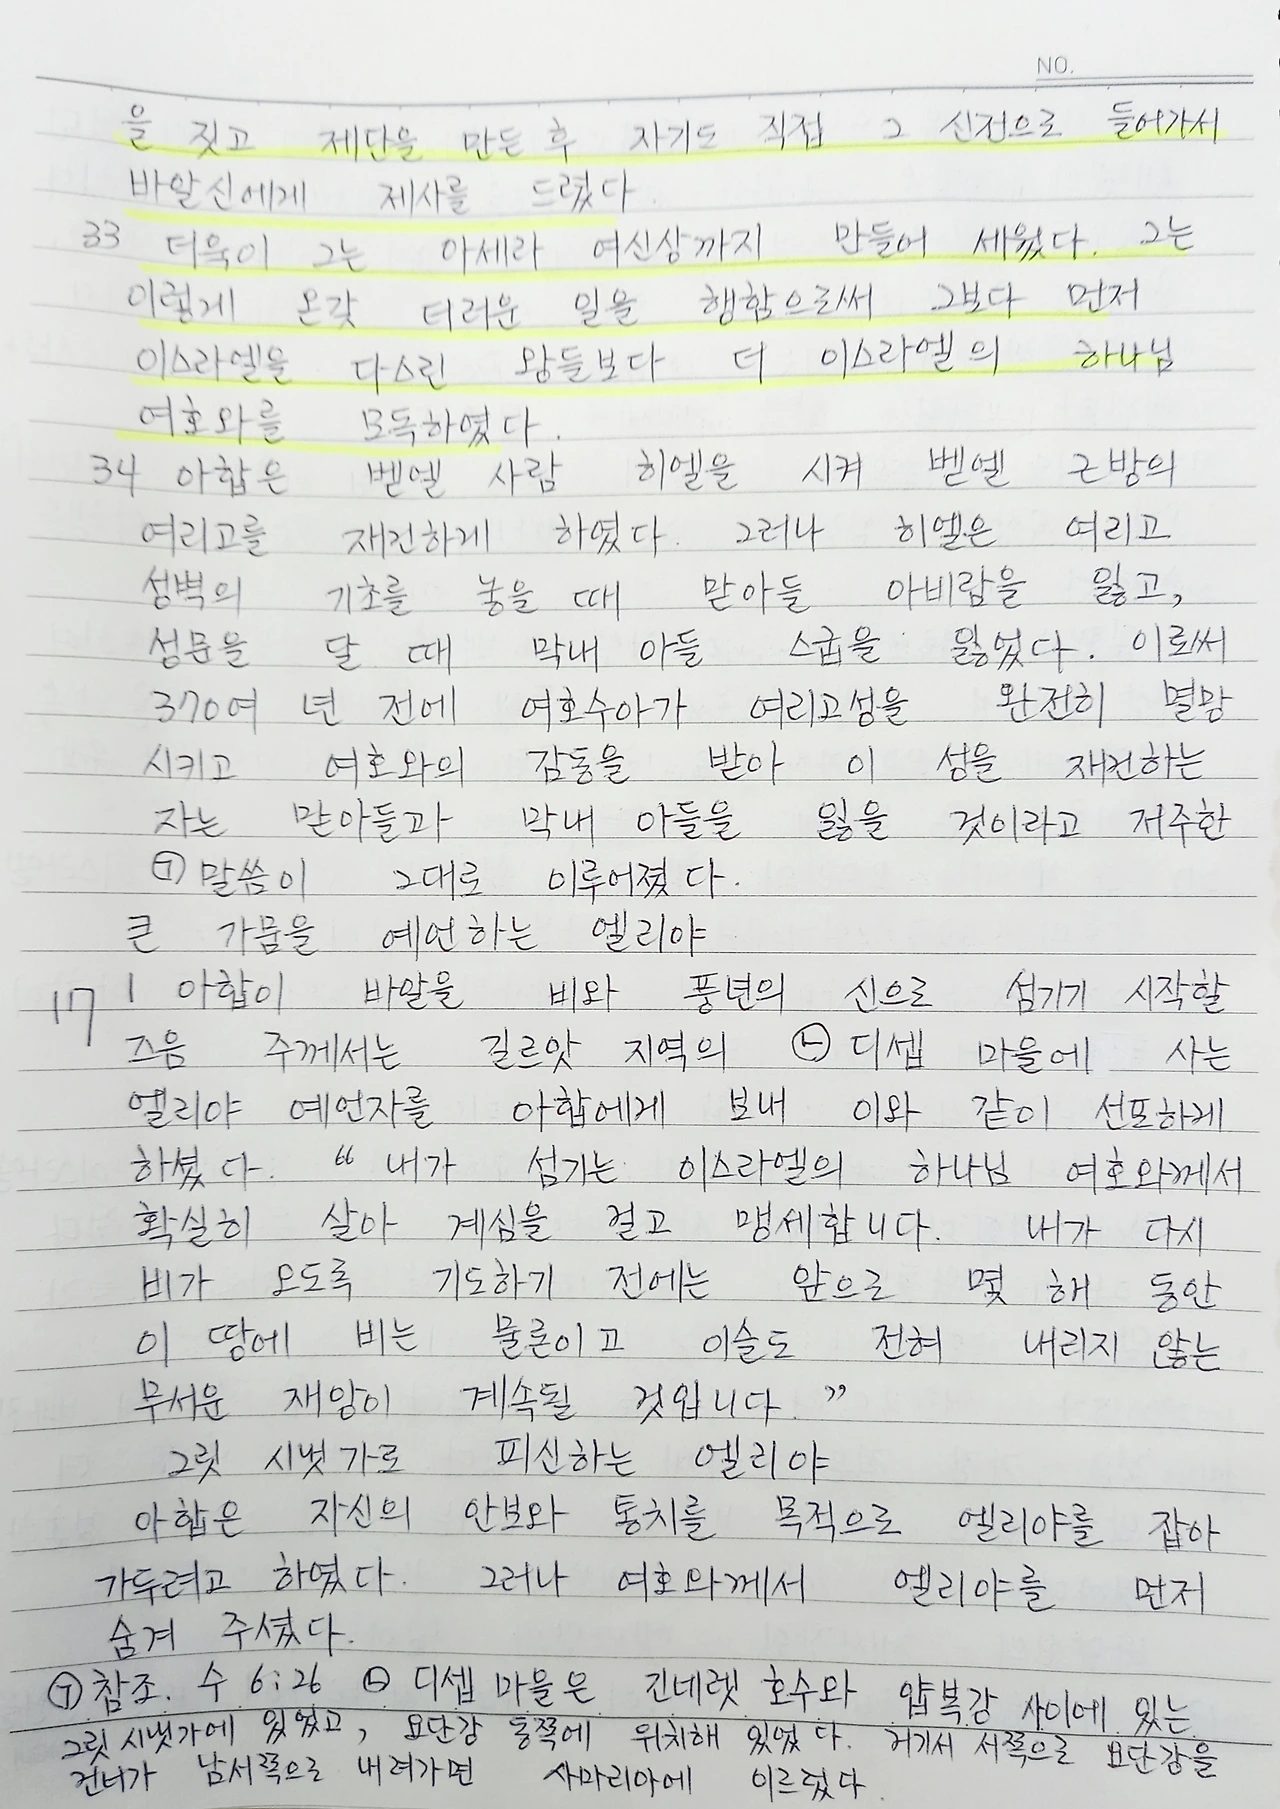 NO.
을 짓고 제단을 만든 후 자기도 직접 그 신전으로 들어가서
바알신에게 제사를 드렸다.
33 더욱이 그는 아세라 여신상까지 만들어 세웠다. 그는
이렇게 온갖 더러운 일을 행함으로써 그보다 먼저
이스라엘을 다스린 왕들보다 더 이스라엘의 하나님
여호와를 모독하였다.
34 아합은 벧엘 사람 히엘을 시켜 벧엘 근방의
여리고를 재건하게 하였다. 그러나 히엘은 여리고
성벽의 기초를 놓을 때 맏아들 아비람을 잃고,
성문을 달 때 막내 아들 스굽을 잃었다. 이로써
370여 년 전에 여호수아가 여리고성을 완전히 멸망
시키고 여호와의 감동을 받아 이 성을 재건하는
자는 맏아들과 막내 아들을 잃을 것이라고 저주한
㉠ 말씀이 그대로 이루어졌다.
큰 가뭄을 예언하는 엘리야
17 1 아합이 바알을 비와 풍년의 신으로 섬기기 시작할
즈음 주께서는 길르앗 지역의 ㉡ 디셉 마을에 사는
엘리야 예언자를 아합에게 보내 이와 같이 선포하게
하셨다. “내가 섬기는 이스라엘의 하나님 여호와께서
확실히 살아 계심을 걸고 맹세합니다. 내가 다시
비가 오도록 기도하기 전에는 앞으로 몇 해 동안
이 땅에 비는 물론이고 이슬도 전혀 내리지 않는
무서운 재앙이 계속될 것입니다.”
그릿 시냇가로 피신하는 엘리야
아합은 자신의 안보와 통치를 목적으로 엘리야를 잡아
가두려고 하였다. 그러나 여호와께서 엘리야를 먼저
숨겨 주셨다.
㉠ 참조. 수 6:26 ㉡ 디셉 마을은 긴네렛 호수와 얍복강 사이에 있는
그릿 시냇가에 있었고, 요단강 동쪽에 위치해 있었다. 거기서 서쪽으로 요단강을
건너가 남서쪽으로 내려가면 사마리아에 이르렀다.